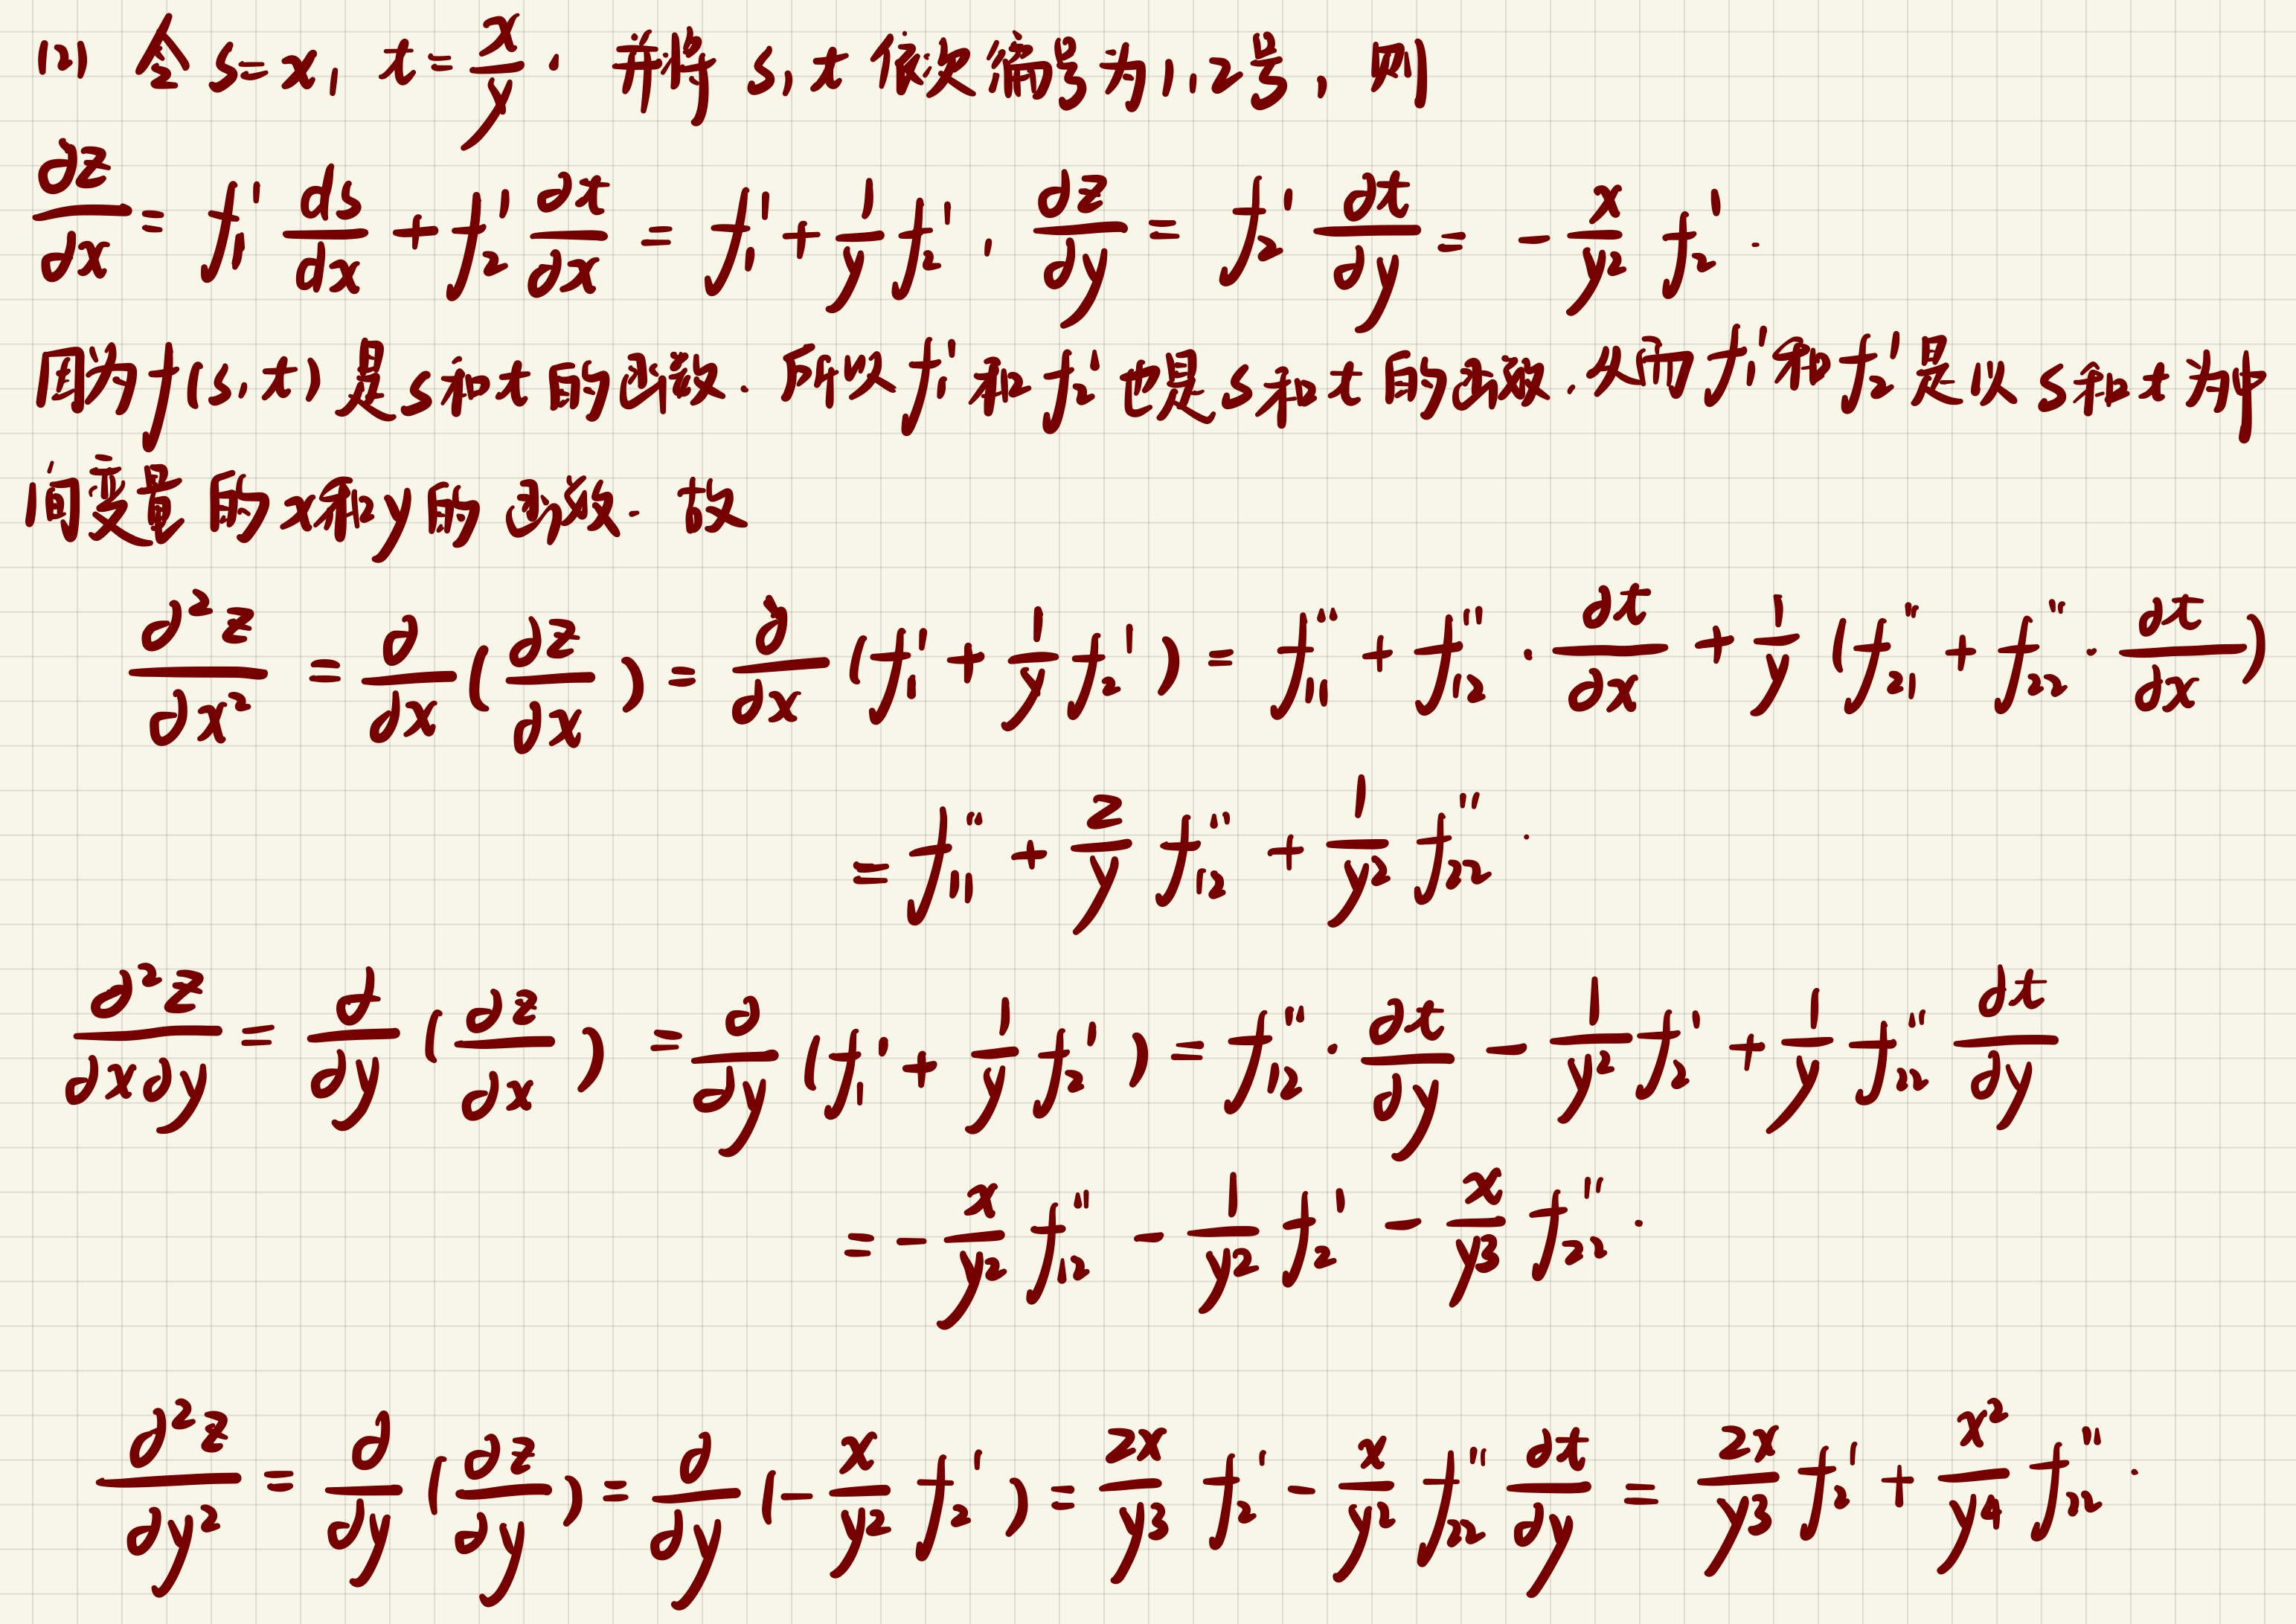 (2) 令 s=x, t=\frac{x}{y}. 并将 s,t 依次编号为1,2号, 则
\frac{∂z}{∂x} = f_1' \frac{ds}{dx} + f_2' \frac{∂t}{∂x} = f_1' + \frac{1}{y} f_2', \frac{∂z}{∂y} = f_2' \frac{∂t}{∂y} = -\frac{x}{y^2} f_2'.
因为 f(s,t) 是 s和t 的函数. 所以 f_1' 和 f_2' 也是 s和t 的函数. 从而 f_1' 和 f_2' 是以 s和t 为中
间变量的 x和y的函数. 故
\frac{∂^2 z}{∂x^2} = \frac{∂}{∂x} (\frac{∂z}{∂x}) = \frac{∂}{∂x} (f_1' + \frac{1}{y} f_2') = f_{11}'' + f_{12}'' · \frac{∂t}{∂x} + \frac{1}{y} (f_{21}'' + f_{22}'' · \frac{∂t}{∂x})
= f_{11}'' + \frac{2}{y} f_{12}'' + \frac{1}{y^2} f_{22}''.
\frac{∂^2 z}{∂x∂y} = \frac{∂}{∂y} (\frac{∂z}{∂x}) = \frac{∂}{∂y} (f_1' + \frac{1}{y} f_2') = f_{12}'' · \frac{∂t}{∂y} - \frac{1}{y^2} f_2' + \frac{1}{y} f_{22}'' \frac{∂t}{∂y}
= -\frac{x}{y^2} f_{12}'' - \frac{1}{y^2} f_2' - \frac{x}{y^3} f_{22}''.
\frac{∂^2 z}{∂y^2} = \frac{∂}{∂y} (\frac{∂z}{∂y}) = \frac{∂}{∂y} (-\frac{x}{y^2} f_2') = \frac{2x}{y^3} f_2' - \frac{x}{y^2} f_{22}'' \frac{∂t}{∂y} = \frac{2x}{y^3} f_2' + \frac{x^2}{y^4} f_{22}''.